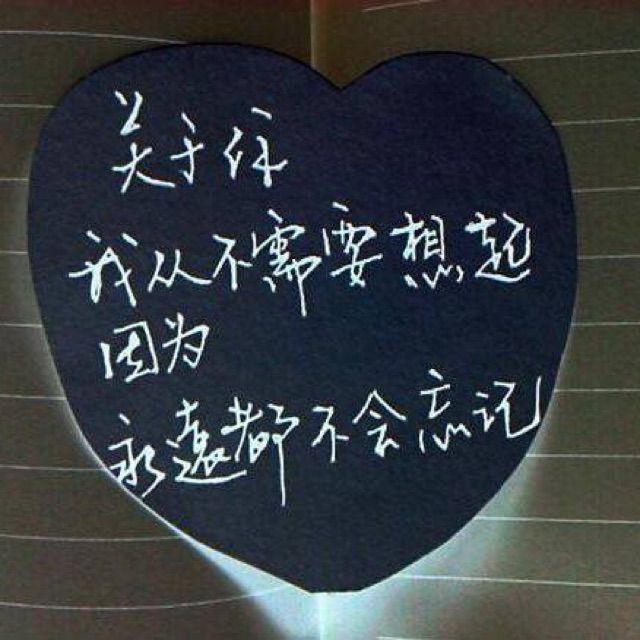 关于你
我从不需要想起
因为
永遠都不会忘记